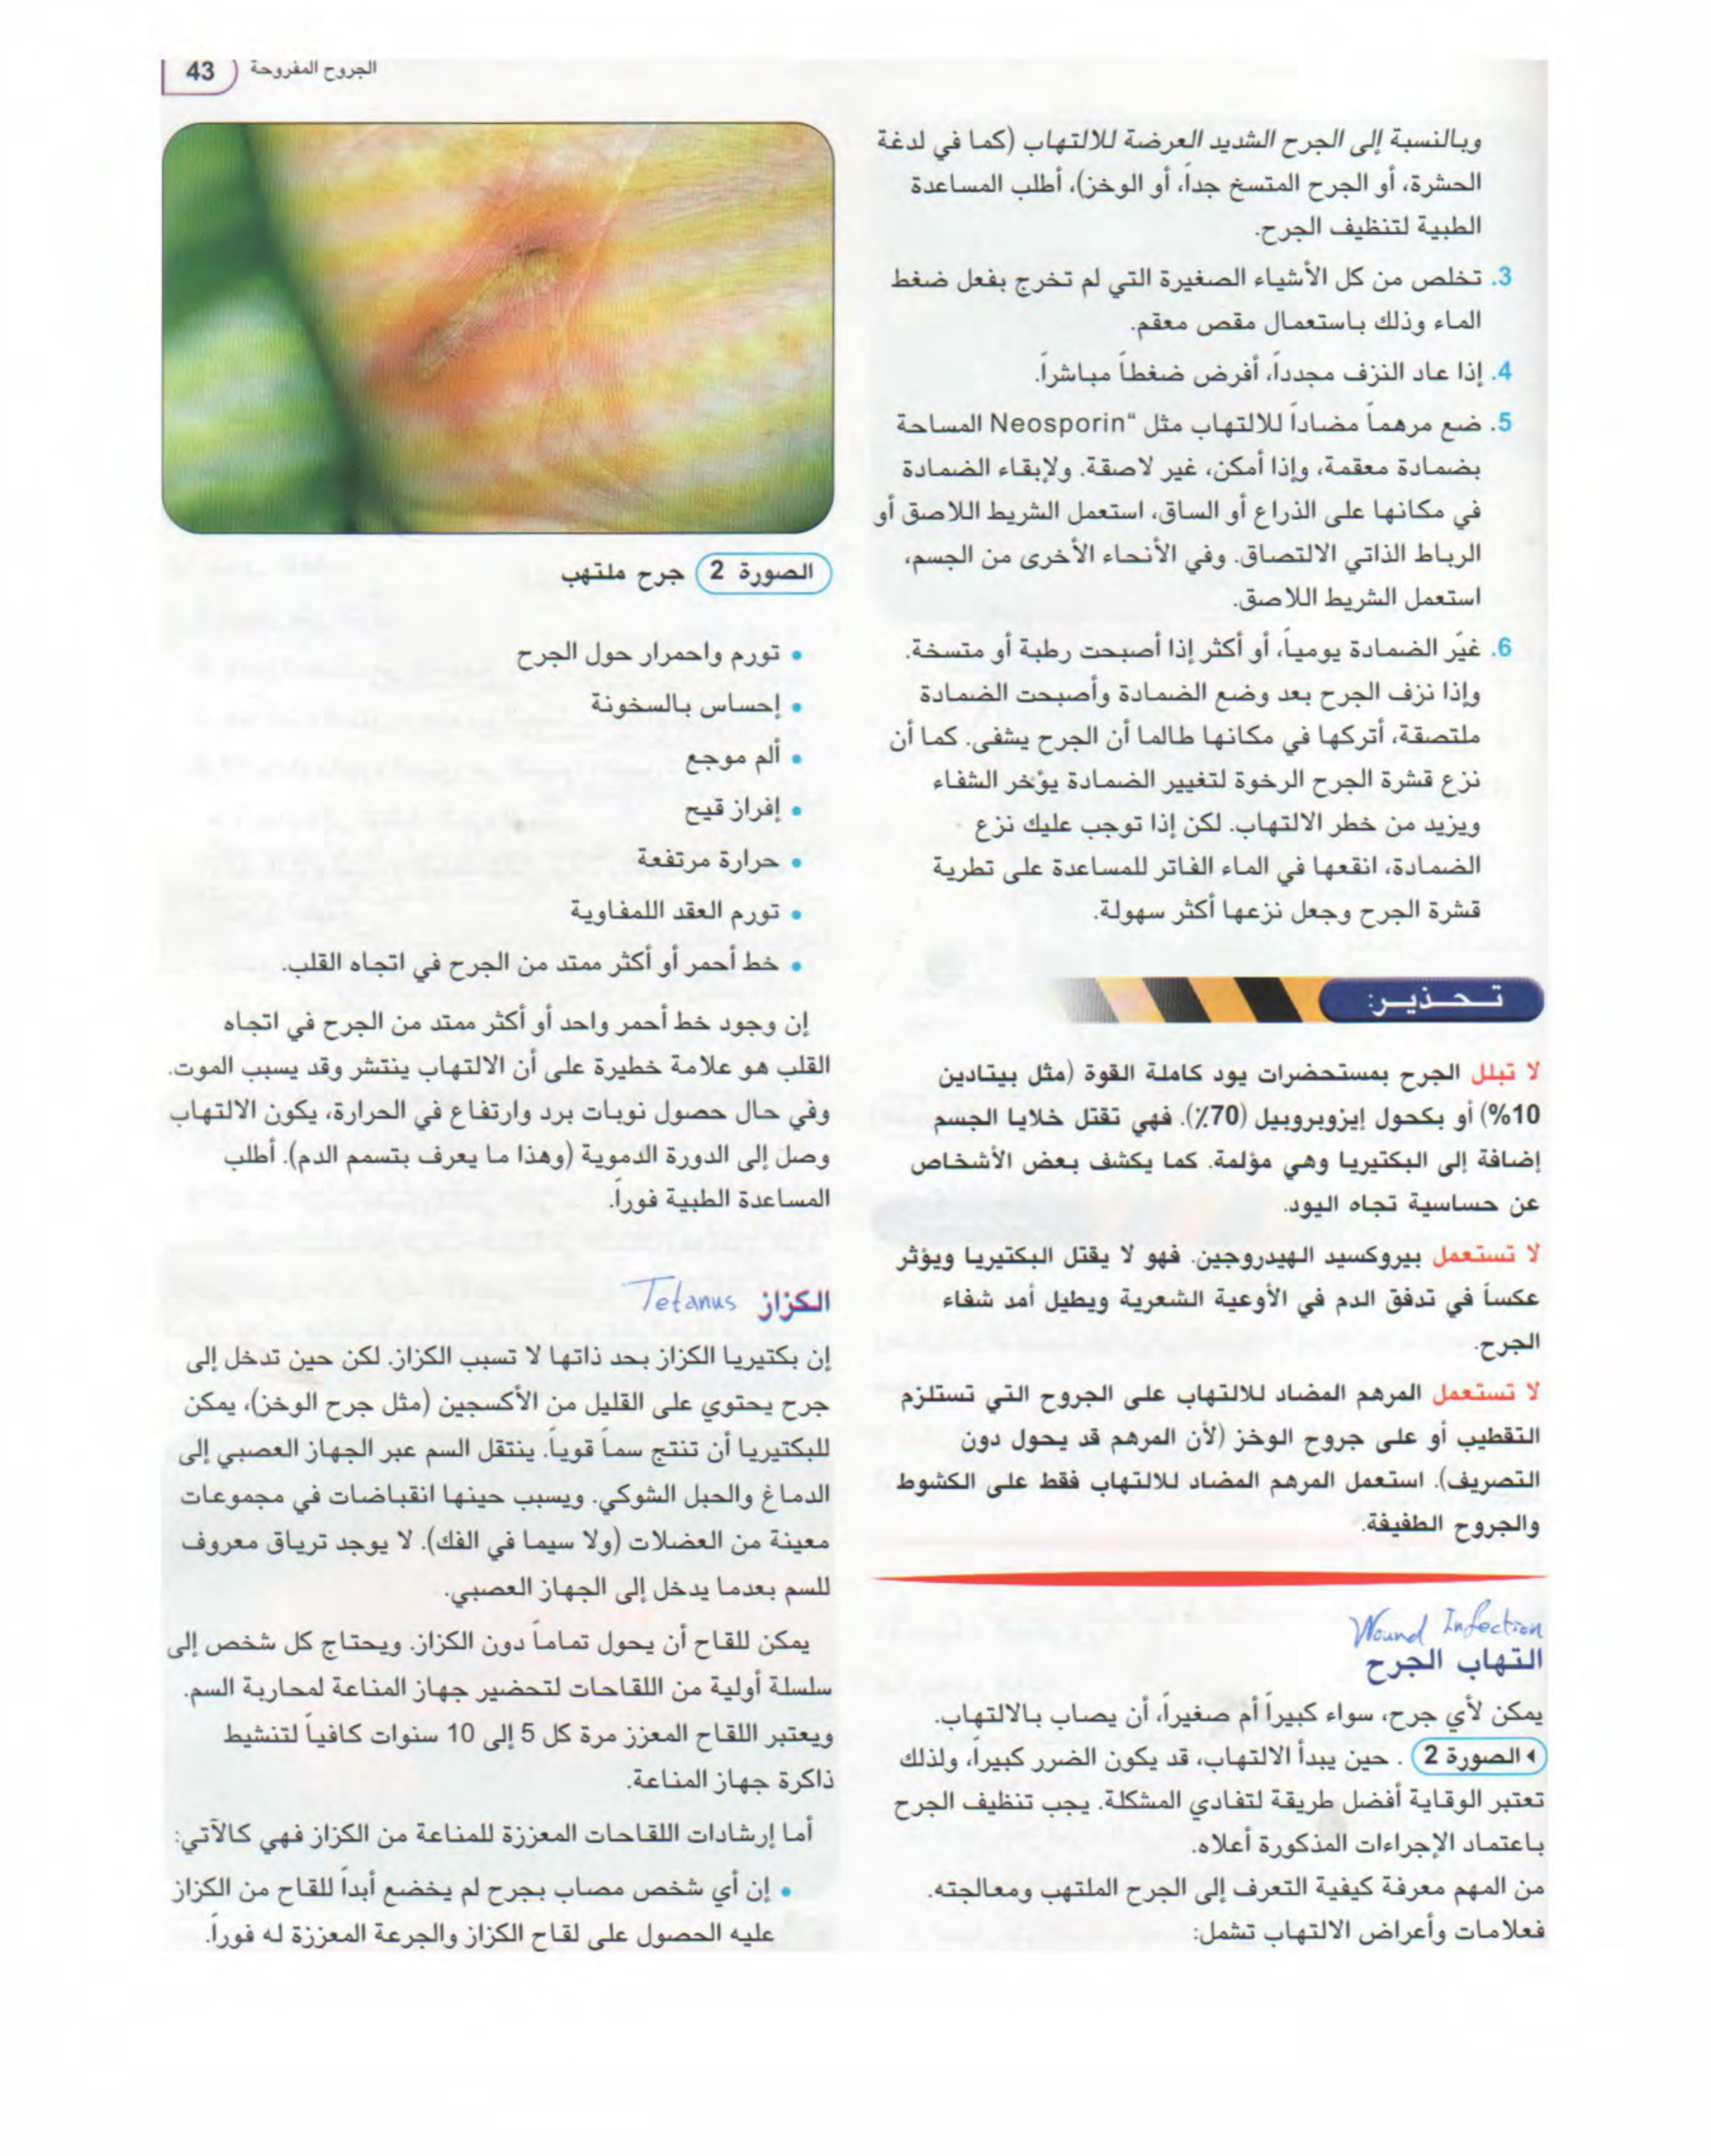 الجروح المفروحة 43
وبالنسبة إلى الجرح الشديد العرضة للالتهاب (كما في لدغة
الحشرة، أو الجرح المتسخ جداً، أو الوخز)، أطلب المساعدة
الطبية لتنظيف الجرح.
3. تخلص من كل الأشياء الصغيرة التي لم تخرج بفعل ضغط
الماء وذلك باستعمال مقص معقم.
4. إذا عاد النزف مجدداً، أفرض ضغطاً مباشراً.
5. ضع مرهماً مضاداً للالتهاب مثل "Neosporin المساحة
بضمادة معقمة، وإذا أمكن، غير لاصقة. ولإبقاء الضمادة
في مكانها على الذراع أو الساق، استعمل الشريط اللاصق أو
الرباط الذاتي الالتصاق. وفي الأنحاء الأخرى من الجسم،
استعمل الشريط اللاصق.
6. غيّر الضمادة يومياً، أو أكثر إذا أصبحت رطبة أو متسخة.
وإذا نزف الجرح بعد وضع الضمادة وأصبحت الضمادة
ملتصقة، أتركها في مكانها طالما أن الجرح يشفى. كما أن
نزع قشرة الجرح الرخوة لتغيير الضمادة يؤخر الشفاء
ويزيد من خطر الالتهاب. لكن إذا توجب عليك نزع
الضمادة، انقعها في الماء الفاتر للمساعدة على تطرية
قشرة الجرح وجعل نزعها أكثر سهولة.
تحذير:
لا تبلل الجرح بمستحضرات يود كاملة القوة (مثل بيتادين
10%) أو بكحول إيزوبروبيل (70٪). فهي تقتل خلايا الجسم
إضافة إلى البكتيريا وهي مؤلمة. كما يكشف بعض الأشخاص
عن حساسية تجاه اليود.
لا تستعمل بيروكسيد الهيدروجين. فهو لا يقتل البكتيريا ويؤثر
عكساً في تدفق الدم في الأوعية الشعرية ويطيل أمد شفاء
الجرح.
لا تستعمل المرهم المضاد للالتهاب على الجروح التي تستلزم
التقطيب أو على جروح الوخز (لأن المرهم قد يحول دون
التصريف). استعمل المرهم المضاد للالتهاب فقط على الكشوط
والجروح الطفيفة.
Wound Infection
التهاب الجرح
يمكن لأي جرح، سواء كبيراً أم صغيراً، أن يصاب بالالتهاب.
الصورة 2 . حين يبدأ الالتهاب، قد يكون الضرر كبيراً، ولذلك
تعتبر الوقاية أفضل طريقة لتفادي المشكلة. يجب تنظيف الجرح
باعتماد الإجراءات المذكورة أعلاه.
من المهم معرفة كيفية التعرف إلى الجرح الملتهب ومعالجته.
فعلامات وأعراض الالتهاب تشمل:
الصورة 2 جرح ملتهب
• تورم واحمرار حول الجرح
• إحساس بالسخونة
• ألم موجع
• إفراز قيح
• حرارة مرتفعة
• تورم العقد اللمفاوية
• خط أحمر أو أكثر ممتد من الجرح في اتجاه القلب.
إن وجود خط أحمر واحد أو أكثر ممتد من الجرح في اتجاه
القلب هو علامة خطيرة على أن الالتهاب ينتشر وقد يسبب الموت.
وفي حال حصول نوبات برد وارتفاع في الحرارة، يكون الالتهاب
وصل إلى الدورة الدموية (وهذا ما يعرف بتسمم الدم). أطلب
المساعدة الطبية فوراً.
الكزاز Tetanus
إن بكتيريا الكزاز بحد ذاتها لا تسبب الكزاز. لكن حين تدخل إلى
جرح يحتوي على القليل من الأكسجين (مثل جرح الوخز)، يمكن
للبكتيريا أن تنتج سماً قوياً. ينتقل السم عبر الجهاز العصبي إلى
الدماغ والحبل الشوكي. ويسبب حينها انقباضات في مجموعات
معينة من العضلات (ولا سيما في الفك). لا يوجد ترياق معروف
للسم بعدما يدخل إلى الجهاز العصبي.
يمكن للقاح أن يحول تماماً دون الكزاز. ويحتاج كل شخص إلى
سلسلة أولية من اللقاحات لتحضير جهاز المناعة لمحاربة السم.
ويعتبر اللقاح المعزز مرة كل 5 إلى 10 سنوات كافياً لتنشيط
ذاكرة جهاز المناعة.
أما إرشادات اللقاحات المعززة للمناعة من الكزاز فهي كالآتي:
• إن أي شخص مصاب بجرح لم يخضع أبداً للقاح من الكزاز
عليه الحصول على لقاح الكزاز والجرعة المعززة له فوراً.